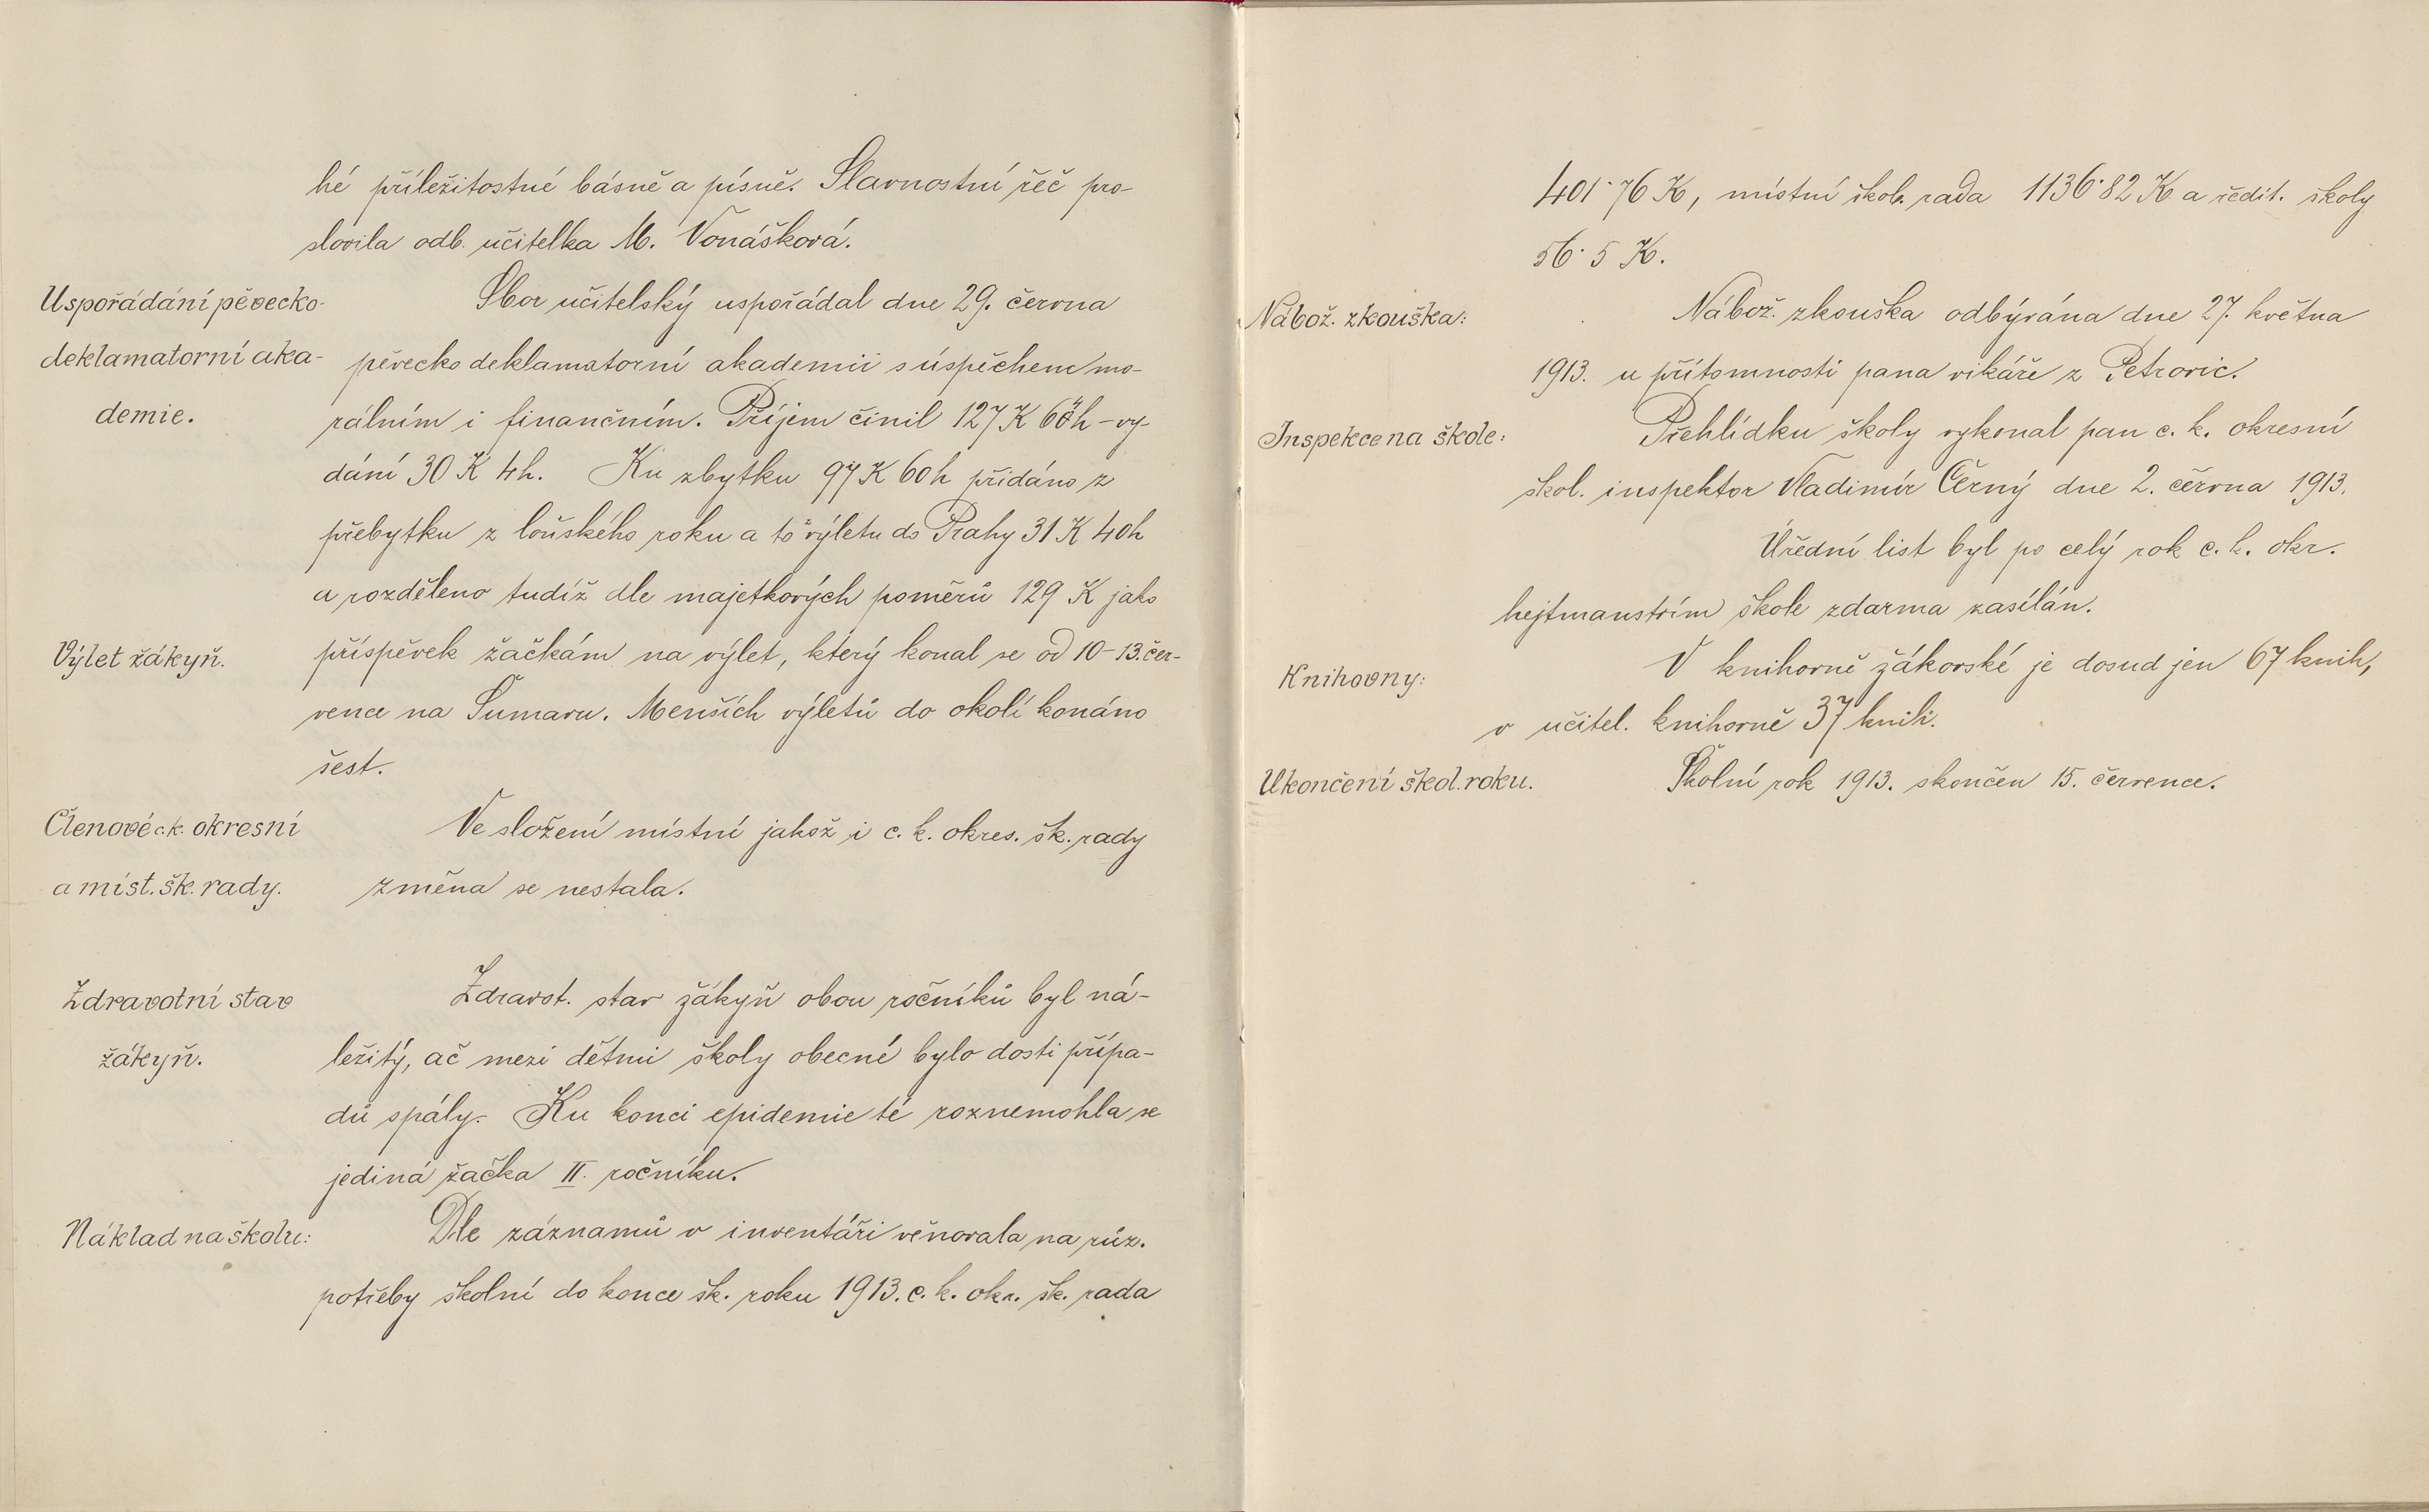 hé příležitostné básně a písně. Slavnostní řeč pro-
slovila odb. učitelka M. Vonášková.
Uspořádání pěvecko-
deklamatorní aka-
demie.
Sbor učitelský uspořádal dne 29. června
pěvecko deklamatorní akademii s úspěchem mo-
rálním i finančním. Příjem činil 127 K 64 h - vy-
dání 30 K 4 h. Ku zbytku 97 K 60 h přidáno z
přebytku z loňského roku a to výletu do Prahy 31 K 40 h
a rozděleno tudíž dle majetkových poměrů 129 K jako
Výlet žákyň.
příspěvek žačkám na výlet, který konal se od 10-13. čer-
vence na Šumavu. Menších výletů do okolí konáno
šest.
Členové c.k. okresní
a míst. šk. rady.
Ve složení místní jakož i c. k. okres. šk. rady
změna se nestala.
Zdravotní stav
žákyň.
Zdravot. stav žákyň obou ročníků byl ná-
ležitý, ač mezi dětmi školy obecné bylo dosti přípa-
dů spály. Ku konci epidemie té roznemohla se
jediná žačka II. ročníku.
Náklad na školu:
Dle záznamů v inventáři věnovala na růz.
potřeby školní do konce šk. roku 1913. c. k. okr. šk. rada
401·76 K, místní škol. rada 1136·82 K a ředit. školy
56·5 K.
Nábož. zkouška:
Nábož. zkouška odbývána dne 27. května
1913. u přítomnosti pana vikáře z Petrovic.
Inspekce na škole:
Přehlídku školy vykonal pan c. k. okresní
škol. inspektor Vladimír Černý dne 2. června 1913.
Úřední list byl po celý rok c. k. okr.
hejtmanstvím škole zdarma zasílán.
Knihovny:
V knihovně žákovské je dosud jen 67 knih,
v učitel. knihovně 37 knih.
Ukončení škol. roku.
Školní rok 1913. skončen 15. července.